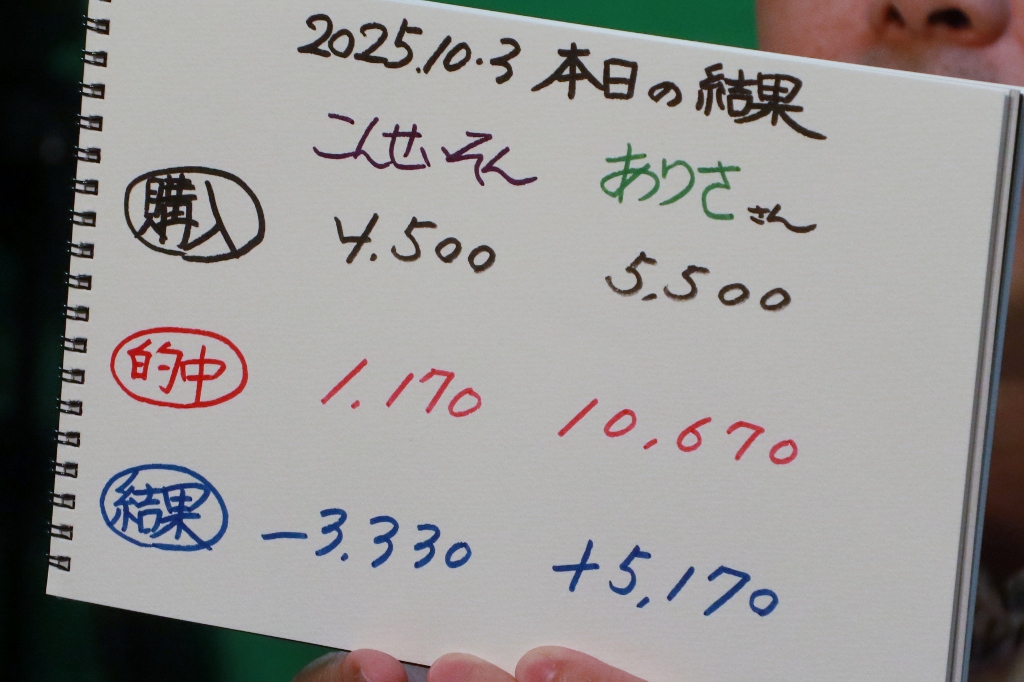 2025.10.3 本日の結果
こんせいそん ありささん
購入 4.500 5.500
的中 1.170 10.670
結果 -3.330 +5,170